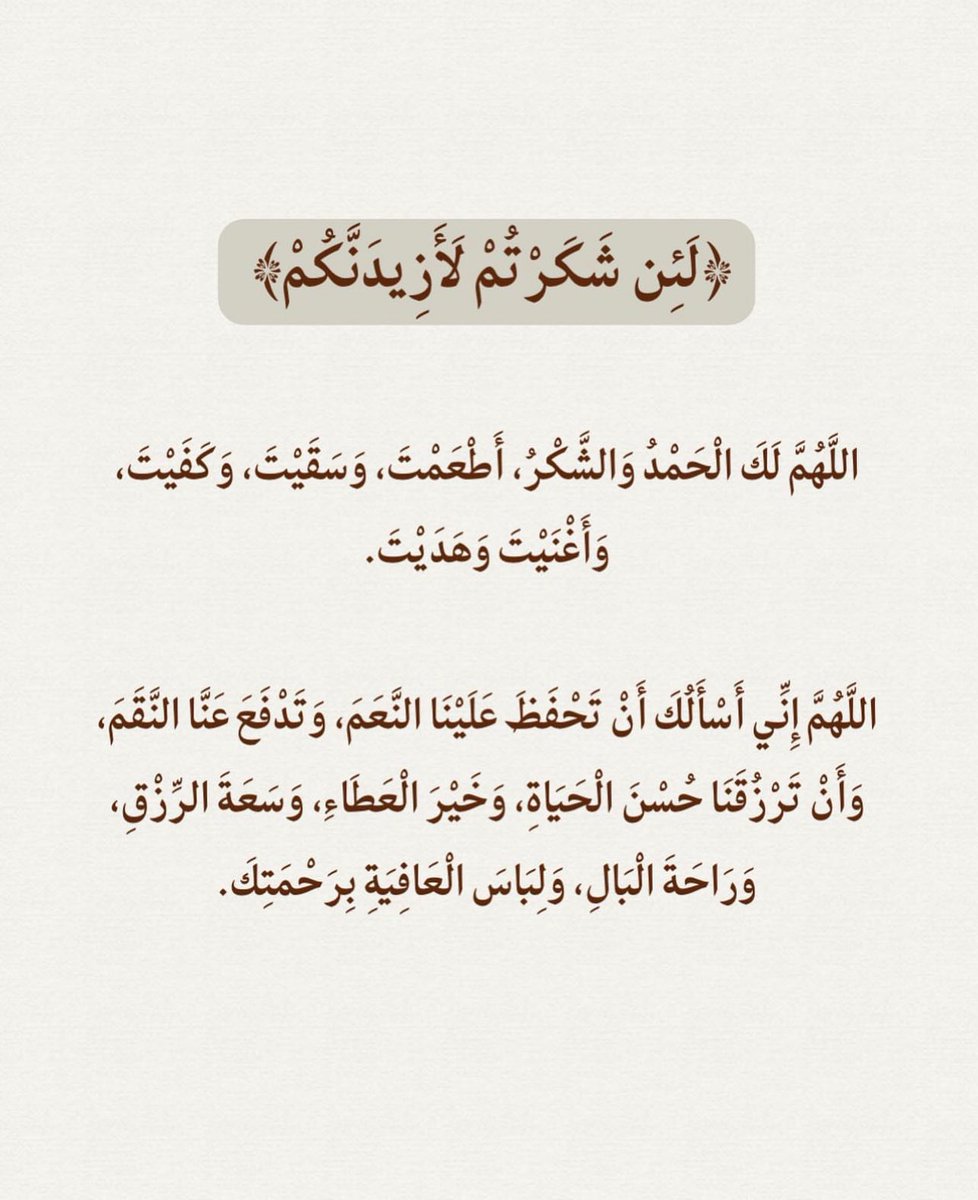 ﴿لَئِن شَكَرْتُمْ لَأَزِيدَنَّكُمْ﴾
اللَّهُمَّ لَكَ الْحَمْدُ وَالشَّكْرُ، أَطْعَمْتَ، وَسَقَيْتَ، وَكَفَيْتَ،
وَأَغْنَيْتَ وَهَدَيْتَ.
اللَّهُمَّ إِنِّي أَسْأَلُكَ أَنْ تَحْفَظَ عَلَيْنَا النَّعَمَ، وَتَدْفَعَ عَنَّا النَّقَمَ،
وَأَنْ تَرْزُقَنَا حُسْنَ الْحَيَاةِ، وَخَيْرَ الْعَطَاءِ، وَسَعَةَ الرِّزْقِ،
وَرَاحَةَ الْبَالِ، وَلِبَاسَ الْعَافِيَةِ بِرَحْمَتِكَ.